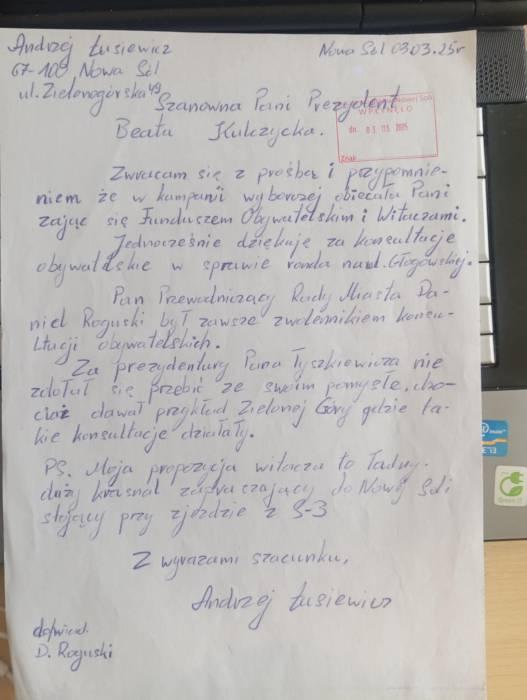 Andrzej Łusiewicz
Nowa Sól 03.03.25r
67-100 Nowa Sól
ul. Zielonogórska 49
Szanowna Pani Prezydent
Beata Kulczycka.
WPŁYNĘŁO
dn. 03. 03. 2025
Znak
Zwracam się z prośbą i przypomnie-
niem że w kampanii wyborczej obiecała Pani
zająć się Funduszem Obywatelskim i Witaczami.
Jednocześnie dziękuję za konsultacje
obywatelskie w sprawie ronda na ul. Głogowskiej.
Pan Przewodniczący Rady Miasta Da-
niel Roguski był zawsze zwolennikiem konsu-
ltacji obywatelskich.
Za prezydentury Pana Tyszkiewicza nie
zdołał się przebić ze swoim pomysłem, cho-
ciaż dawał przykład Zielonej Góry gdzie ta-
kie konsultacje działały.
PS. Moja propozycja witacza to ładny.
duży krasnal zapraszający do Nowej Soli
stojący przy zjeździe z S-3
Z wyrazami szacunku,
Andrzej Łusiewicz
do wiad.
D. Roguski